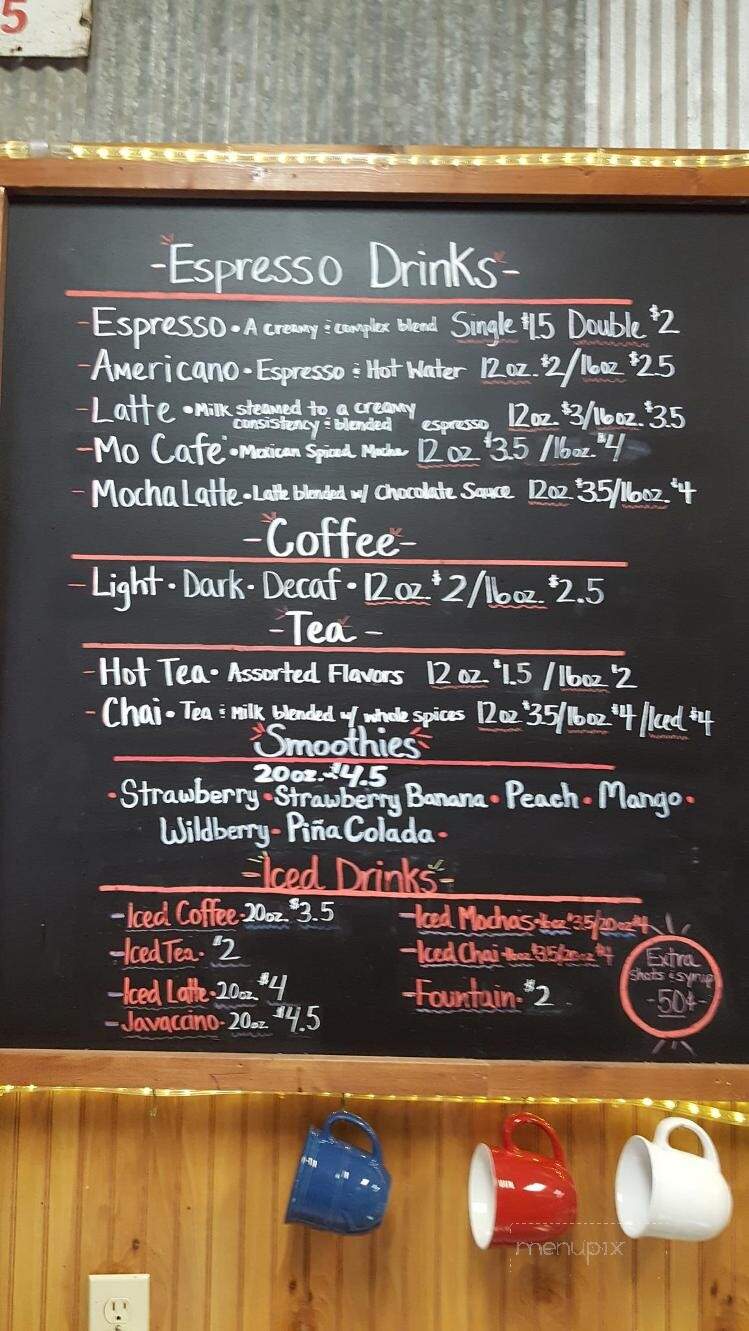 5
-Espresso Drinks-
-Espresso • A creamy & complex blend Single $1.5 Double $2
-Americano • Espresso & Hot Water 12oz. $2/16oz $2.5
-Latte • Milk steamed to a creamy consistency & blended espresso 12oz. $3/16oz. $3.5
-Mo Cafe • Mexican Spiced Mocha 12oz $3.5 /16oz. $4
-Mocha Latte • Latte blended w/ Chocolate Sauce 12oz $3.5/16oz $4
-Coffee-
-Light • Dark • Decaf • 12oz. $2/16oz. $2.5
-Tea-
-Hot Tea • Assorted Flavors 12oz. $1.5 /16oz $2
-Chai • Tea & Milk blended w/ whole spices 12oz $3.5/16oz $4/Iced $4
Smoothies
20oz. $4.5
• Strawberry • Strawberry Banana • Peach • Mango •
Wildberry • Piña Colada •
-Iced Drinks-
-Iced Coffee • 20oz. $3.5
-Iced Tea • $2
-Iced Latte • 20oz. $4
-Javaccino • 20oz $4.5
-Iced Mochas • 16oz $3.5/20oz $4
-Iced Chai • 16oz $3.5/20oz $4
-Fountain • $2
Extra
shots & syrup
-50¢-
menupix